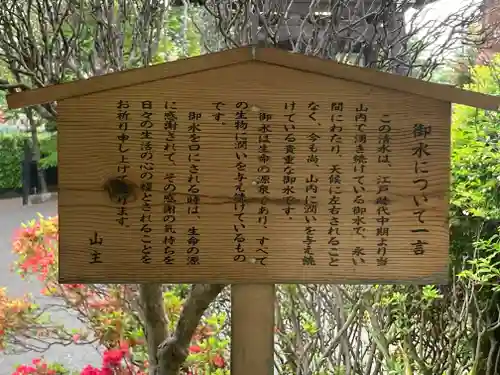 御水について一言
この清水は、江戸時代中期より当
山内で湧き続けている御水で、永い
間にわたり、天候に左右される事
なく、今も尚、山内に潤いを与え続
けている貴重な御水です。
御水は生命の源泉であり、すべて
の生物に潤いを与え続けているもの
です。
御水を口にされる時は、生命の源
に感謝されて、その感謝の気持ちを
日々の生活の心の糧とされることを
お祈り申し上げております。
山主